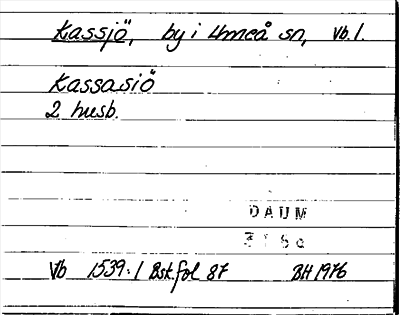 Kassjö, by i Umeå sn, Vb. l.
Kassasiö
2 husb.
DAUM
Vb 1539:1 Bskfol 87 BH 1976